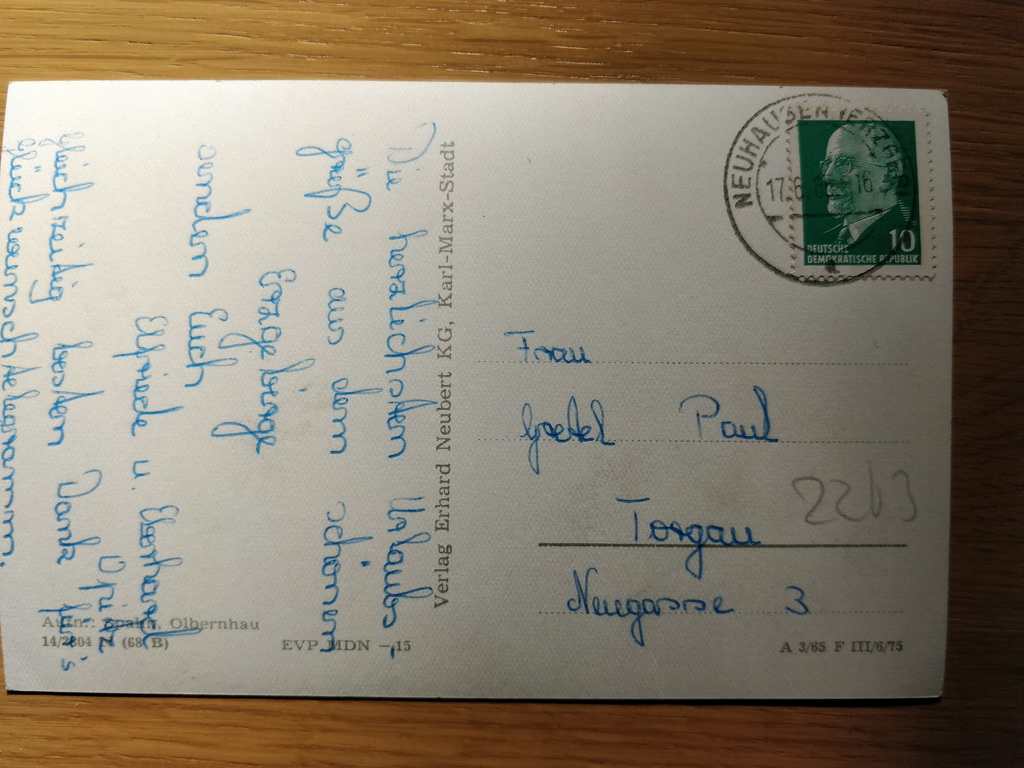 Die herzlichsten Urlaubs-
grüße aus dem schönen
Erzgebirge
senden Euch
Elfriede u. Eberhard
Opitz
Gleichzeitig besten Dank für's
Glückwunschtelegramm.
Verlag Erhard Neubert KG, Karl-Marx-Stadt
NEUHAUSEN (ERZGEB)
17.6. 16
10
DEUTSCHE
DEMOKRATISCHE REPUBLIK
Frau
Gretel Paul
2263
Torgau
Neugasse 3
Aufn.: Olbernhau
14/2804 (68 B)
EVP MDN –15
A 3/65 F III/6/75